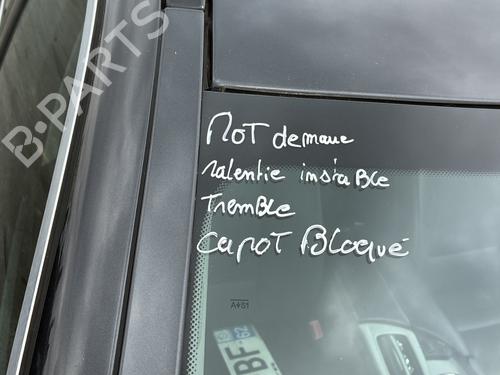 B-PARTS
MOT demaue
ralentie instaBle
TremBle
CapoT Bloqué
A451
BF
62